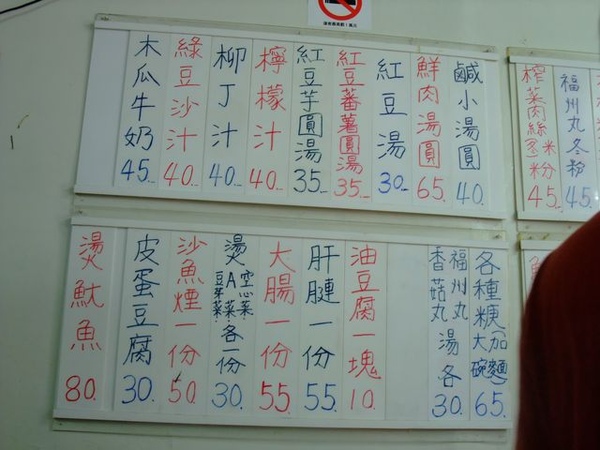 福州丸冬粉 45.
榨菜肉絲冬米粉 45.
鹹小湯圓 40.
鮮肉湯圓 65
紅豆湯 30
紅豆蕃薯圓湯 35
紅豆芋圓湯 35
檸檬汁 40
柳丁汁 40
綠豆沙汁 40
木瓜牛奶 45
各種糆加大碗麵 65.
福州丸 香菇丸 湯各 30.
油豆腐一塊 10.
肝腱一份 55.
大腸一份 55.
燙A菜.空心菜.豆芽菜.各一份 30.
沙魚煙一份 50.
皮蛋豆腐 30.
燙魷魚 80.